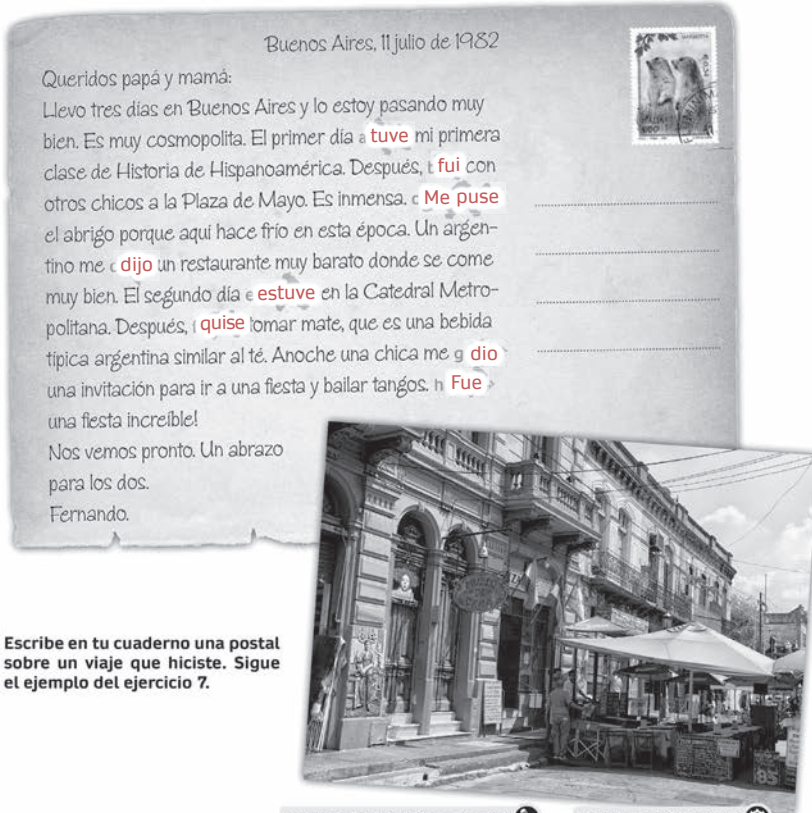 Buenos Aires, 11 julio de 1982
Queridos papá y mamá:
Llevo tres días en Buenos Aires y lo estoy pasando muy
bien. Es muy cosmopolita. El primer día a tuve mi primera
clase de Historia de Hispanoamérica. Después, fui con
otros chicos a la Plaza de Mayo. Es inmensa. Me puse
el abrigo porque aquí hace frío en esta época. Un argen-
tino me dijo un restaurante muy barato donde se come
muy bien. El segundo día e estuve en la Catedral Metro-
politana. Después, quise tomar mate, que es una bebida
típica argentina similar al té. Anoche una chica me g dio
una invitación para ir a una fiesta y bailar tangos. h Fue
una fiesta increíble!
Nos vemos pronto. Un abrazo
para los dos.
Fernando.
Escribe en tu cuaderno una postal
sobre un viaje que hiciste. Sigue
el ejemplo del ejercicio 7.